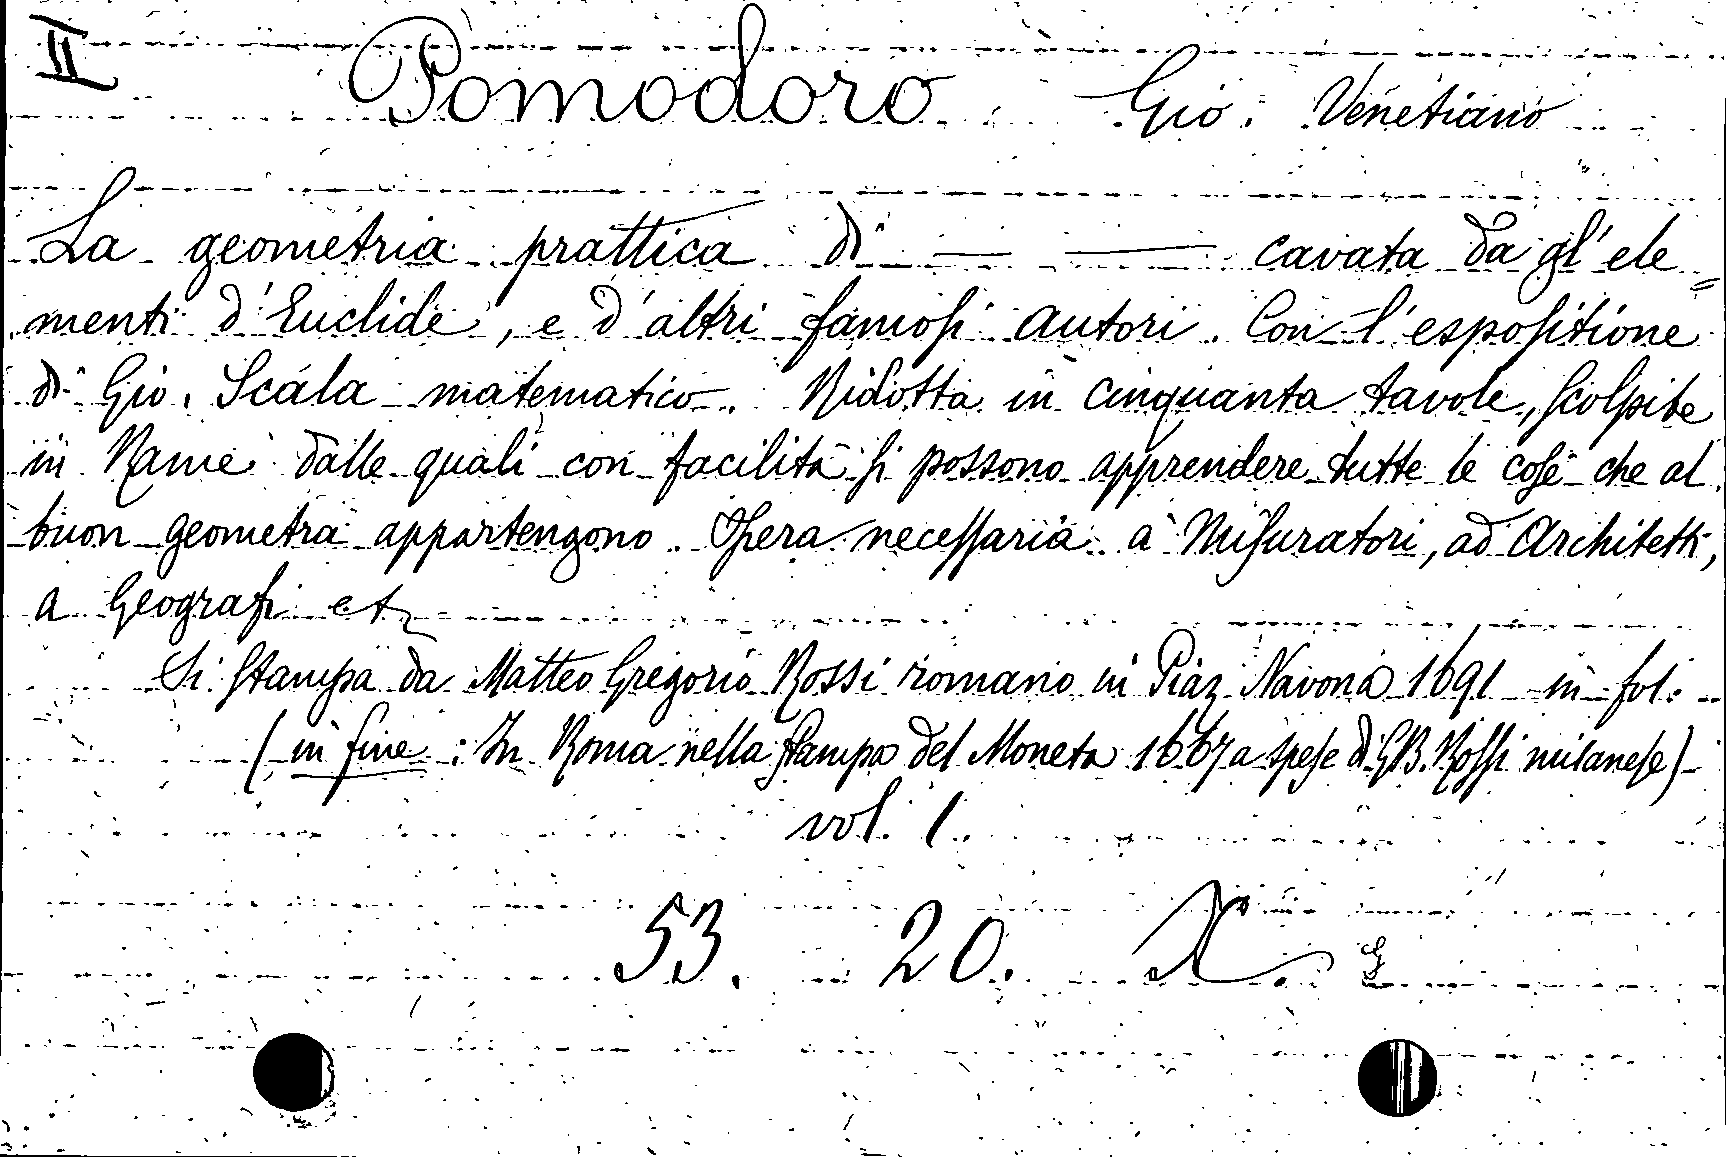 II Pomodoro Gio: Venetiano
La geometria prattica di — — cavata da gl'ele=
menti d'Euclide, e d'altri famosi autori. Con l'espositione
di Gio. Scala matematico. Ridotta in cinquanta tavole, scolpite
in Rame dalle quali con facilità si possono apprendere tutte le cose che al
buon geometra appartengono. Opera necessaria a Misuratori, ad Architetti,
a Geografi et
Si stampa da Matteo Gregorio Rossi romano in Piaz Navona 1691 in fol:
(in fine: In Roma nella stampa del Moneta 1667 a spese di GB. Rossi milanese)
vol. 1.
53. 20. X.